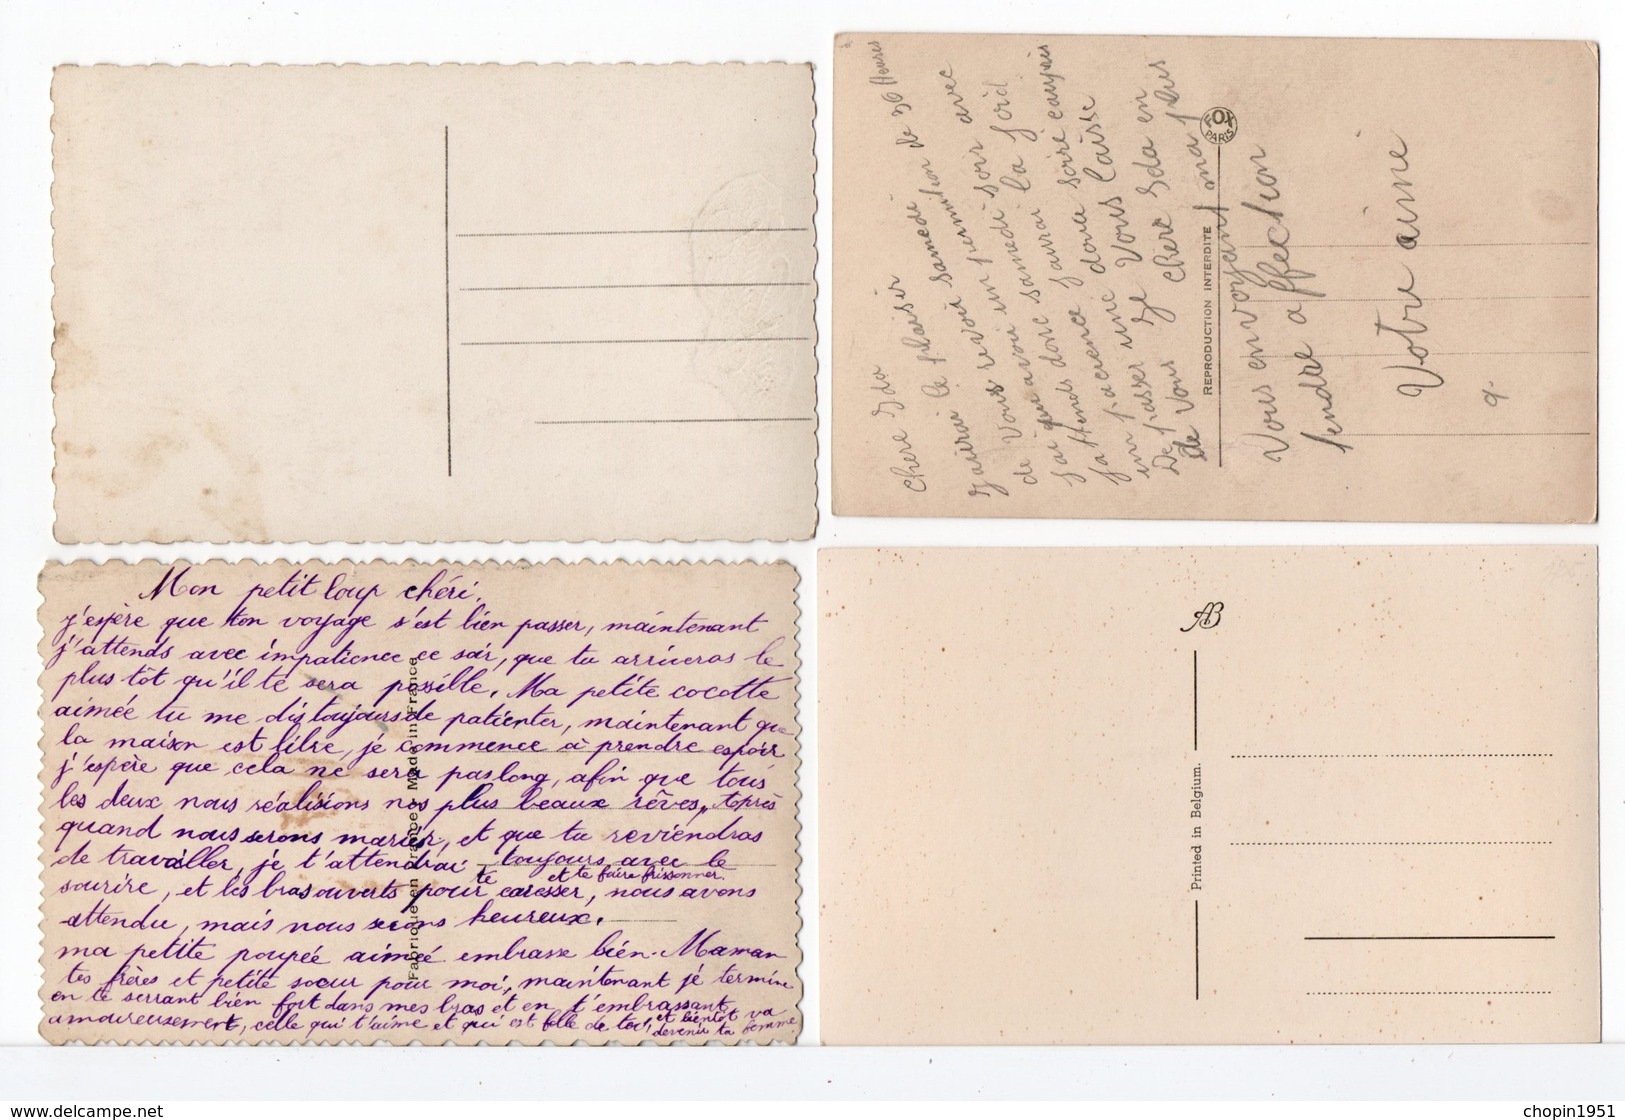 Chere Ida
Jaurai le plaisir samedi
Vous revoir permition de 36 Heures
un permi soir avec
de Vous samedi la Joid
Jai donc Jaurai soiré
Jattends donce Laisse
une Vous
De passer Je Ida en
de Vous chère plus
Vous envoyant ma
tendre affection
Votre aimé
REPRODUCTION INTERDITE
FOX
PARIS
Mon petit loup chéri,
j'espère que ton voyage s'est bien passer, maintenant
j'attends avec impatience ce soir, que tu arriveras le
plus tôt qu'il te sera possible. Ma petite cocotte
aimée tu me dis toujours de patienter, maintenant que
la maison est libre, je commence à prendre espoir
j'espère que cela ne sera pas long, afin que tous
les deux nous réalisions nos plus beaux rêves, Après
quand nous serons marier, et que tu reviendras
de travailler, je t'attendrai toujours avec le
sourire, et les bras ouverts pour te caresser, et te faire frissonner. nous avons
attendu, mais nous serons heureux.
ma petite poupée aimée embrasse bien Maman
tes frères et petite soeur pour moi, maintenant je termine
en te serrant bien fort dans mes bras et en t'embrassant
amoureusement, celle qui t'aime et qui est folle de toi, et bientôt va
devenir ta femme
Fabriqué en France - Made in France
AB
Printed in Belgium.
https://www.delcampe.net
chopin1951